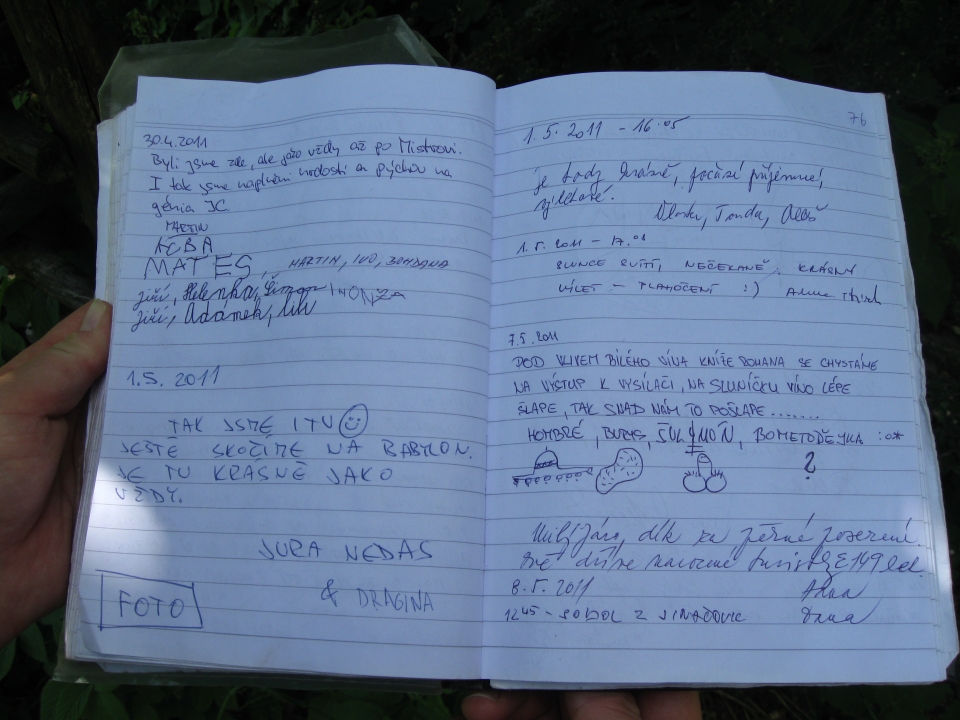 30.4.2011
Byli jsme zde, ale jako vždy až po Mistrovi.
I tak jsme naplněni hrdostí a pýchou na
génia JC.
MARTIN
KEBA
MATES, MARTIN, IVO, BOHDANA
Jiří, Helenka, Šimon HONZA
Jiří, Adámek,
1.5. 2011
TAK JSME I TU
JEŠTĚ SKOČÍME NA BABYLON.
JE TU KRÁSNĚ JAKO
VŽDY.
JURA NEDAS
& DRAGINA
FOTO
76
1.5. 2011 - 16.05
je tady krásně, počasí příjemné,
Vlasta, Tonda, Aleš
1.5. 2011 - 17.01
SLUNCE SVÍTÍ, NEČEKANĚ, KRÁSNÝ
VÝLET - :)
7.5.2011
POD VLIVEM BÍLÉHO VÍNA KNÍŽE BOHANA SE CHYSTÁME
NA VÝSTUP K VYSÍLAČI, NA SLUNÍČKU VÍNO LÉPE
ŠLAPE, TAK SNAD NÁM TO POŠLAPE.......
HOMBRÉ, ŠULIMÓN, :o*
?
Milý Járo, dík za pozemí.
8.5.2011
12 45 - SOBOL Z JINAČOVIC Dana